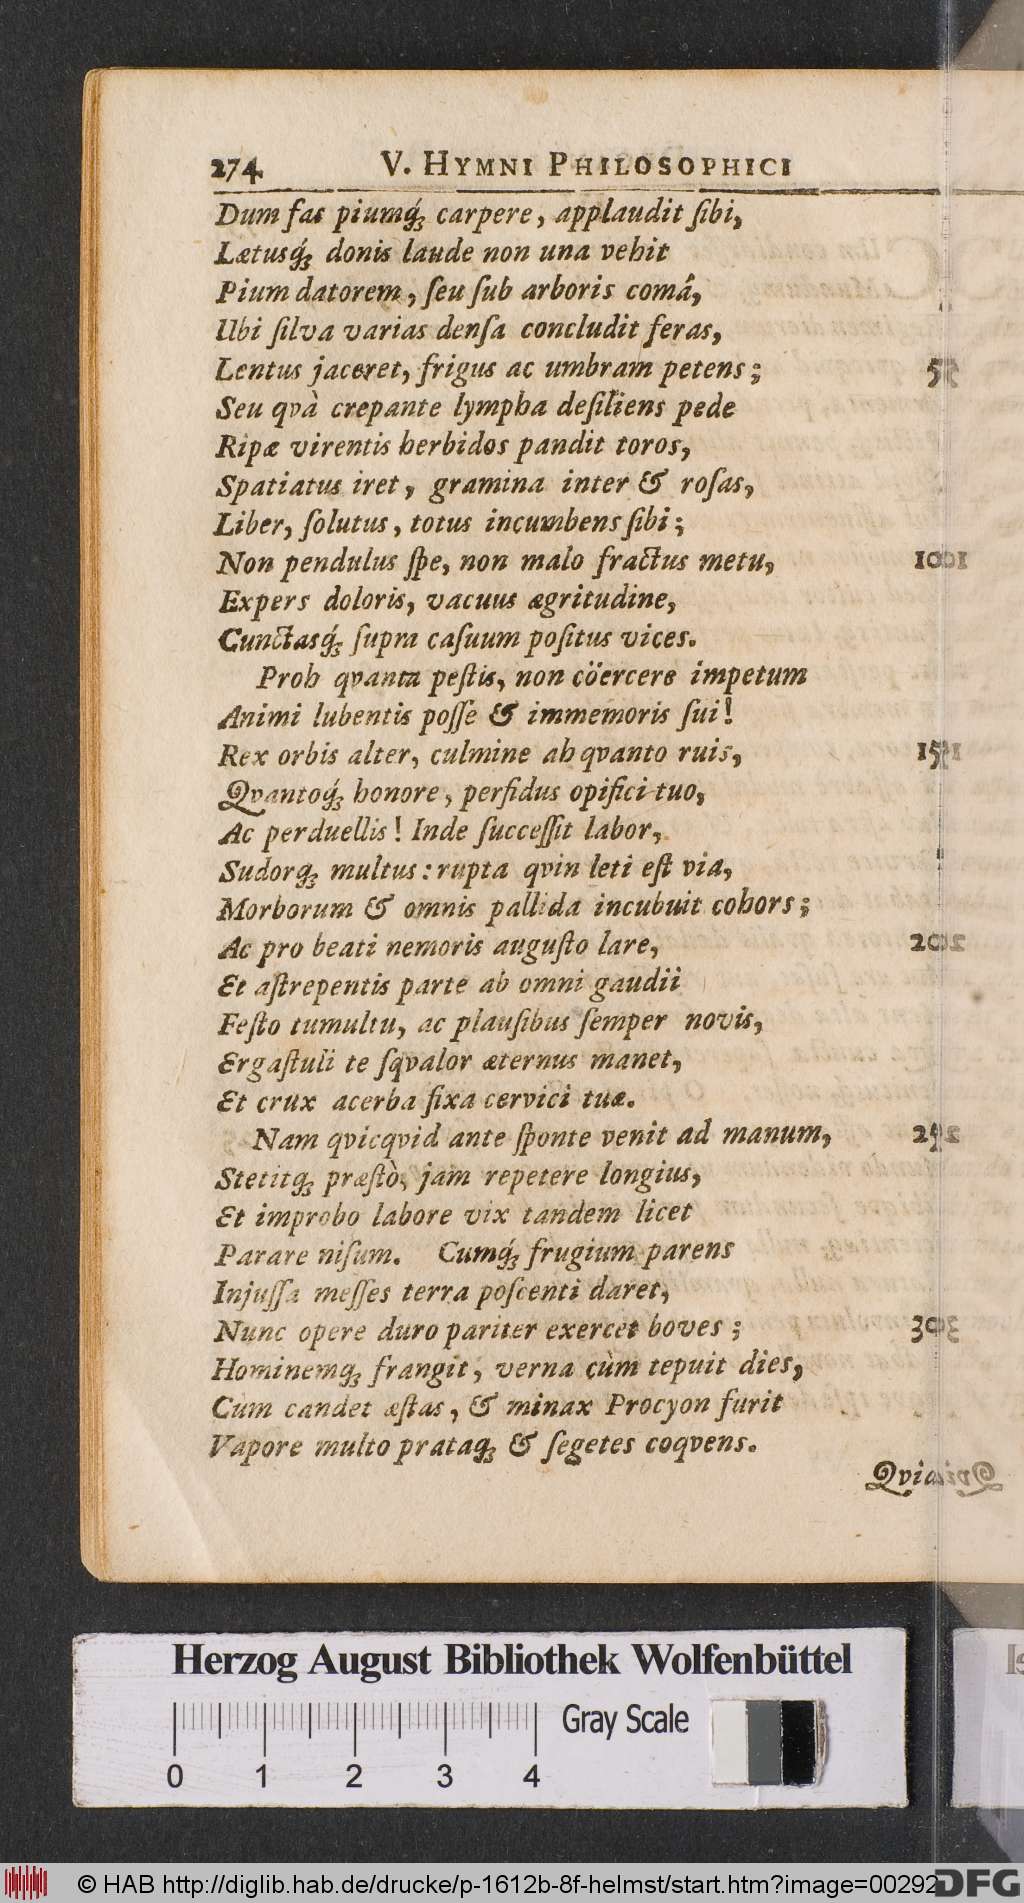 274 V. HYMNI PHILOSOPHICI
Dum fas piumq́ꝫ carpere, applaudit ſibi,
Lætusq́ꝫ donis laude non una vehit
Pium datorem, ſeu ſub arboris comâ,
Ubi ſilva varias denſa concludit feras,
Lentus jaceret, frigus ac umbram petens; 5
Seu qvà crepante lympha deſiliens pede
Ripæ virentis herbidos pandit toros,
Spatiatus iret, gramina inter & roſas,
Liber, ſolutus, totus incumbens ſibi;
Non pendulus ſpe, non malo fractus metu, 10
Expers doloris, vacuus ægritudine,
Cunctasq́ꝫ ſupra caſuum poſitus vices.
Proh qvanta peſtis, non cöercere impetum
Animi lubentis poſſe & immemoris ſui!
Rex orbis alter, culmine ab qvanto ruis, 15
Qvantoq́ꝫ honore, perfidus opifici tuo,
Ac perduellis! Inde ſucceſſit labor,
Sudorqꝫ multus: rupta qvin leti eſt via,
Morborum & omnis pallida incubuit cohors;
Ac pro beati nemoris auguſto lare, 20
Et aſtrepentis parte ab omni gaudii
Feſto tumultu, ac plauſibus ſemper novis,
Ergaſtuli te ſqvalor æternus manet,
Et crux acerba fixa cervici tuæ.
Nam qvicqvid ante ſponte venit ad manum, 25
Stetitqꝫ præſtò, jam repetere longius,
Et improbo labore vix tandem licet
Parare niſum. Cumq́ꝫ frugium parens
Injuſſa meſſes terra poſcenti daret,
Nunc opere duro pariter exercet boves; 30
Hominemqꝫ frangit, verna cùm tepuit dies,
Cum candet æſtas, & minax Procyon furit
Vapore multo prataqꝫ & ſegetes coqvens.
Qvia
Herzog August Bibliothek Wolfenbüttel
0 1 2 3 4 Gray Scale
© HAB http://diglib.hab.de/drucke/p-1612b-8f-helmst/start.htm?image=00292 DFG